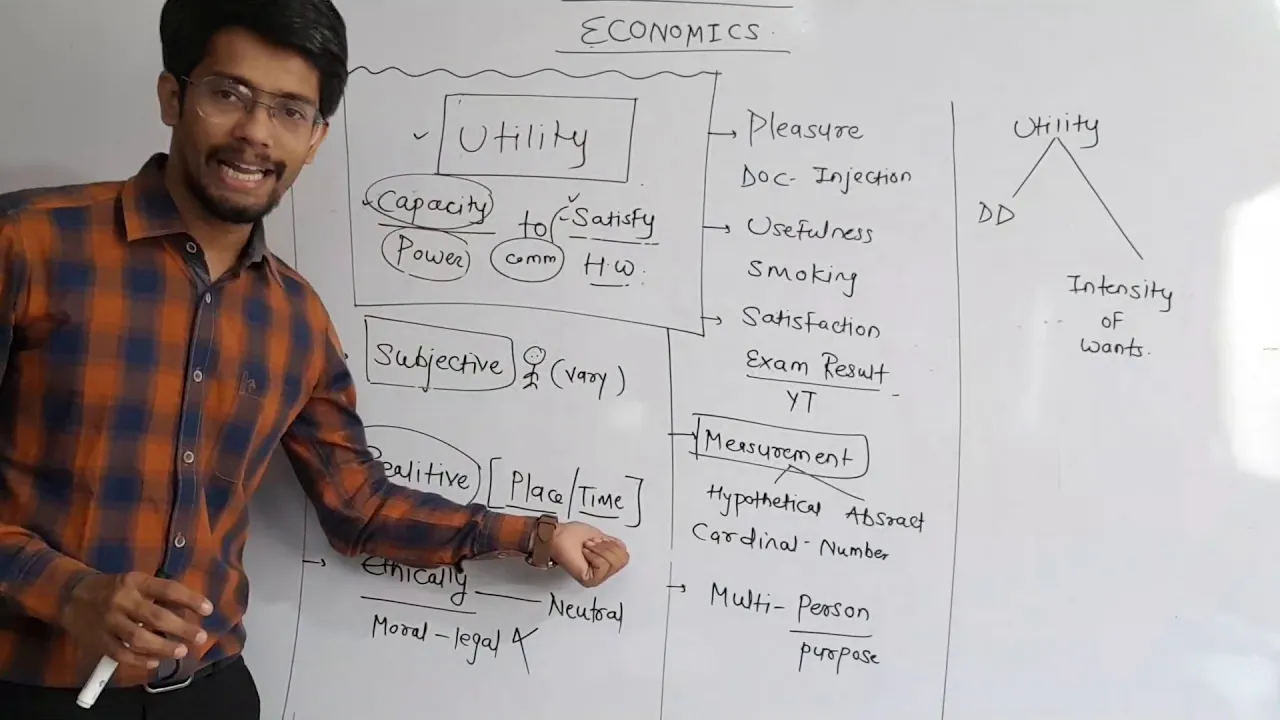 ECONOMICS.
Utility
Capacity to Satisfy
Power comm H.W.
Subjective (vary)
Realitive [Place/Time]
Ethically Neutral
Moral-legal
Pleasure
Doc- Injection
Usefulness
Smoking
Satisfaction
Exam Result
YT
Measurement
Hypothetical Absract
Cardinal-Number
Multi-Person
purpose
Utility
DD
Intensity
of
wants.